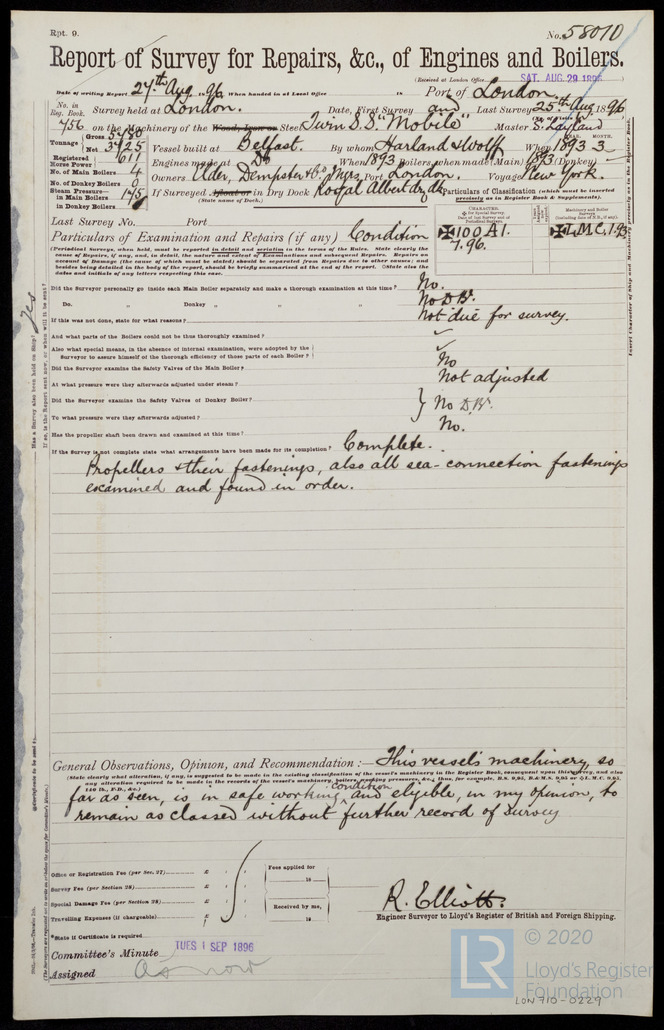 Rpt. 9.
No. 58010
Report of Survey for Repairs, &c., of Engines and Boilers.
(Received at London Office SAT. AUG. 29 1896 )
Date of writing Report 27th Aug 1896 When handed in at Local Office 18 Port of London
No. in Reg. Book. Survey held at London. Date, First Survey and Last Survey 25th Aug 1896
756 on the Machinery of the Wood, Iron or Steel Twin S.S. "Mobile" Master
Tonnage Gross 5780 Net 3725 Vessel built at Belfast. By whom Harland & Wolff When 1893 3
Registered Horse Power 611 Engines made at Do When 1893 Boilers, when made (Main) 1893 (Donkey)
No. of Main Boilers 4 Owners Elder, Dempster & Co. Port London. Voyage New York.
No. of Donkey Boilers 0
Steam Pressure in Main Boilers 175 If Surveyed Afloat or in Dry Dock Royal Albert dry dk
in Donkey Boilers (State name of Dock.)
Particulars of Classification (which must be inserted precisely as in Register Book & Supplements).
Last Survey No. Port
CHARACTER.
Machinery and Boiler Surveys
100 A1. L.M.C. 1.93
7.96.
Particulars of Examination and Repairs (if any) Condition
(Periodical Surveys, when held, must be reported in detail and seriatim in the terms of the Rules. State clearly the
cause of Repairs, if any, and, in detail, the nature and extent of Examinations and subsequent Repairs. Repairs on
account of Damage (the cause of which must be stated) should be separated from Repairs due to other causes; and
besides being detailed in the body of the report, should be briefly summarised at the end of the report. State also the
dates and initials of any letters respecting this case.)
Did the Surveyor personally go inside each Main Boiler separately and make a thorough examination at this time? No.
Do. „ Donkey „ „ „ No D.B.
If this was not done, state for what reasons? Not due for survey.
And what parts of the Boilers could not be thus thoroughly examined?
Also what special means, in the absence of internal examination, were adopted by the
Surveyor to assure himself of the thorough efficiency of those parts of each Boiler?
Did the Surveyor examine the Safety Valves of the Main Boiler? No
At what pressure were they afterwards adjusted under steam? Not adjusted
Did the Surveyor examine the Safety Valves of Donkey Boiler? No D.B.
To what pressure were they afterwards adjusted?
Has the propeller shaft been drawn and examined at this time? No.
If the Survey is not complete state what arrangements have been made for its completion? Complete.
Propellers & their fastenings, also all sea-connection fastenings
examined and found in order.
General Observations, Opinion, and Recommendation:— This vessel's machinery, so
(State clearly what alteration, if any, is suggested to be made in the existing classification of the vessel's machinery in the Register Book, consequent upon this survey, and also
any alteration required to be made in the records of the vessel's machinery, boilers, working pressures, &c.; thus, for example, B.S. 9,95, B.&M.S. 9,95 or L.M.C. 9,95,
140 lb., F.D., &c.)
far as seen, is in safe working condition and eligible, in my opinion, to
remain as classed without further record of survey
Office or Registration Fee (per Sec. 27) £
Survey Fee (per Section 28) £
Special Damage Fee (per Section 28) £
Travelling Expenses (if chargeable) £
Fees applied for
18
Received by me,
18
R. Elliott.
Engineer Surveyor to Lloyd's Register of British and Foreign Shipping.
*State if Certificate is required
Committee's Minute TUES 1 SEP 1896
Assigned as now
Yes
Has a Survey also been held on Ship?
If so, is the Report sent now, or when will it be sent?
Insert Character of Ship and Machinery precisely as in the Register Book.
LR
© 2020
Lloyd's Register
Foundation
LON 710-0229